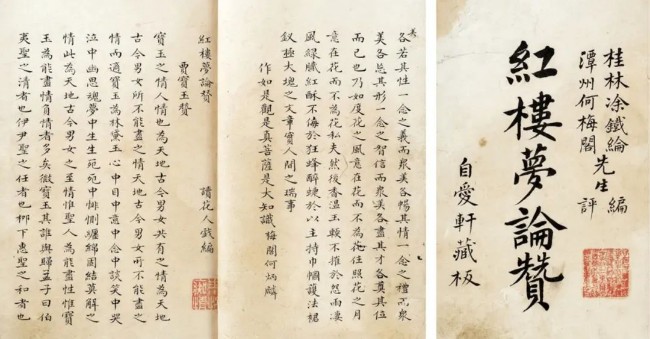 桂林涂鐵綸
潭州何梅閣
先生
編
評
紅樓夢論贊
自愛軒藏板
各若其性一念之義而衆美各暢其情一念之禮而衆
美各其形一念之智信而衆美各盡其才各奠其位
而已也乃如度花之風意在花而不為花往照花之月
意在花而不為花私夫然後香溫玉軟不摧於怨雨凄
風綠膩紅酥不侮於狂蜂醉蝶於以主持巾幗護法裙
釵極大塊之文章實人間之瑞事
作如是觀是真菩薩是大知識 梅閣何炳麟
紅樓夢論贊
讀花人戲編
賈寶玉贊
寶玉之情人情也為天地古今男女共有之情為天地
古今男女所不能盡之情天地古今男女所不能盡之
情而適寶玉為林黛玉心中目中意中念中談笑中哭
泣中幽思魂夢中生生死死中悱惻纏綿固結莫解之
情此為天地古今男女之至情惟聖人為能盡性惟寶
玉為能盡情負情者多矣微寶玉其誰與歸孟子曰伯
夷聖之清者也伊尹聖之任者也柳下惠聖之和者也